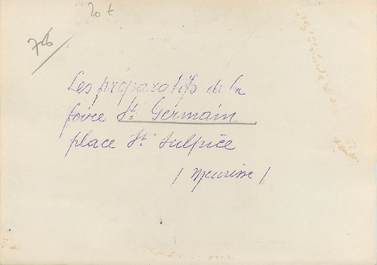 20 t
Les préparatifs de la
foire St Germain
place St Sulpice
/ Meurisse /